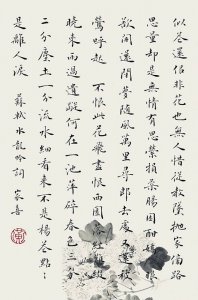 似花還似非花也無人惜從教墜拋家傍路
思量卻是無情有思縈損柔腸困酣嬌眼
欲開還閉夢隨風萬里尋郎去處還被
鶯呼起 不恨此花飛盡恨西園落紅難綴
曉來雨過遺蹤何在一池萍碎春色三分
二分塵土一分流水細看來不是楊花點點
是離人淚 蘇軾水龍吟詞